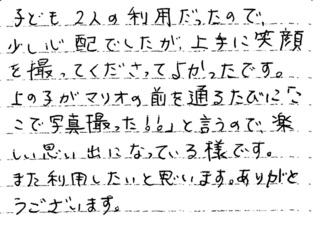 子ども2人の利用だったので、
少し心配でしたが、上手に笑顔
を撮ってくださってよかったです。
上の子がマリオの前を通るたびに「こ
こで写真撮った!!」と言うので、楽
しい思い出になっている様です。
また利用したいと思います。ありがと
うございます。